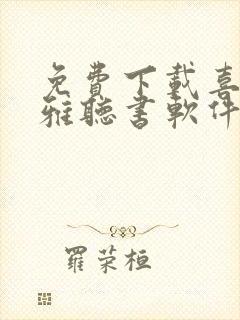 免費下載喜
雅聽書軟件
羅荣桓